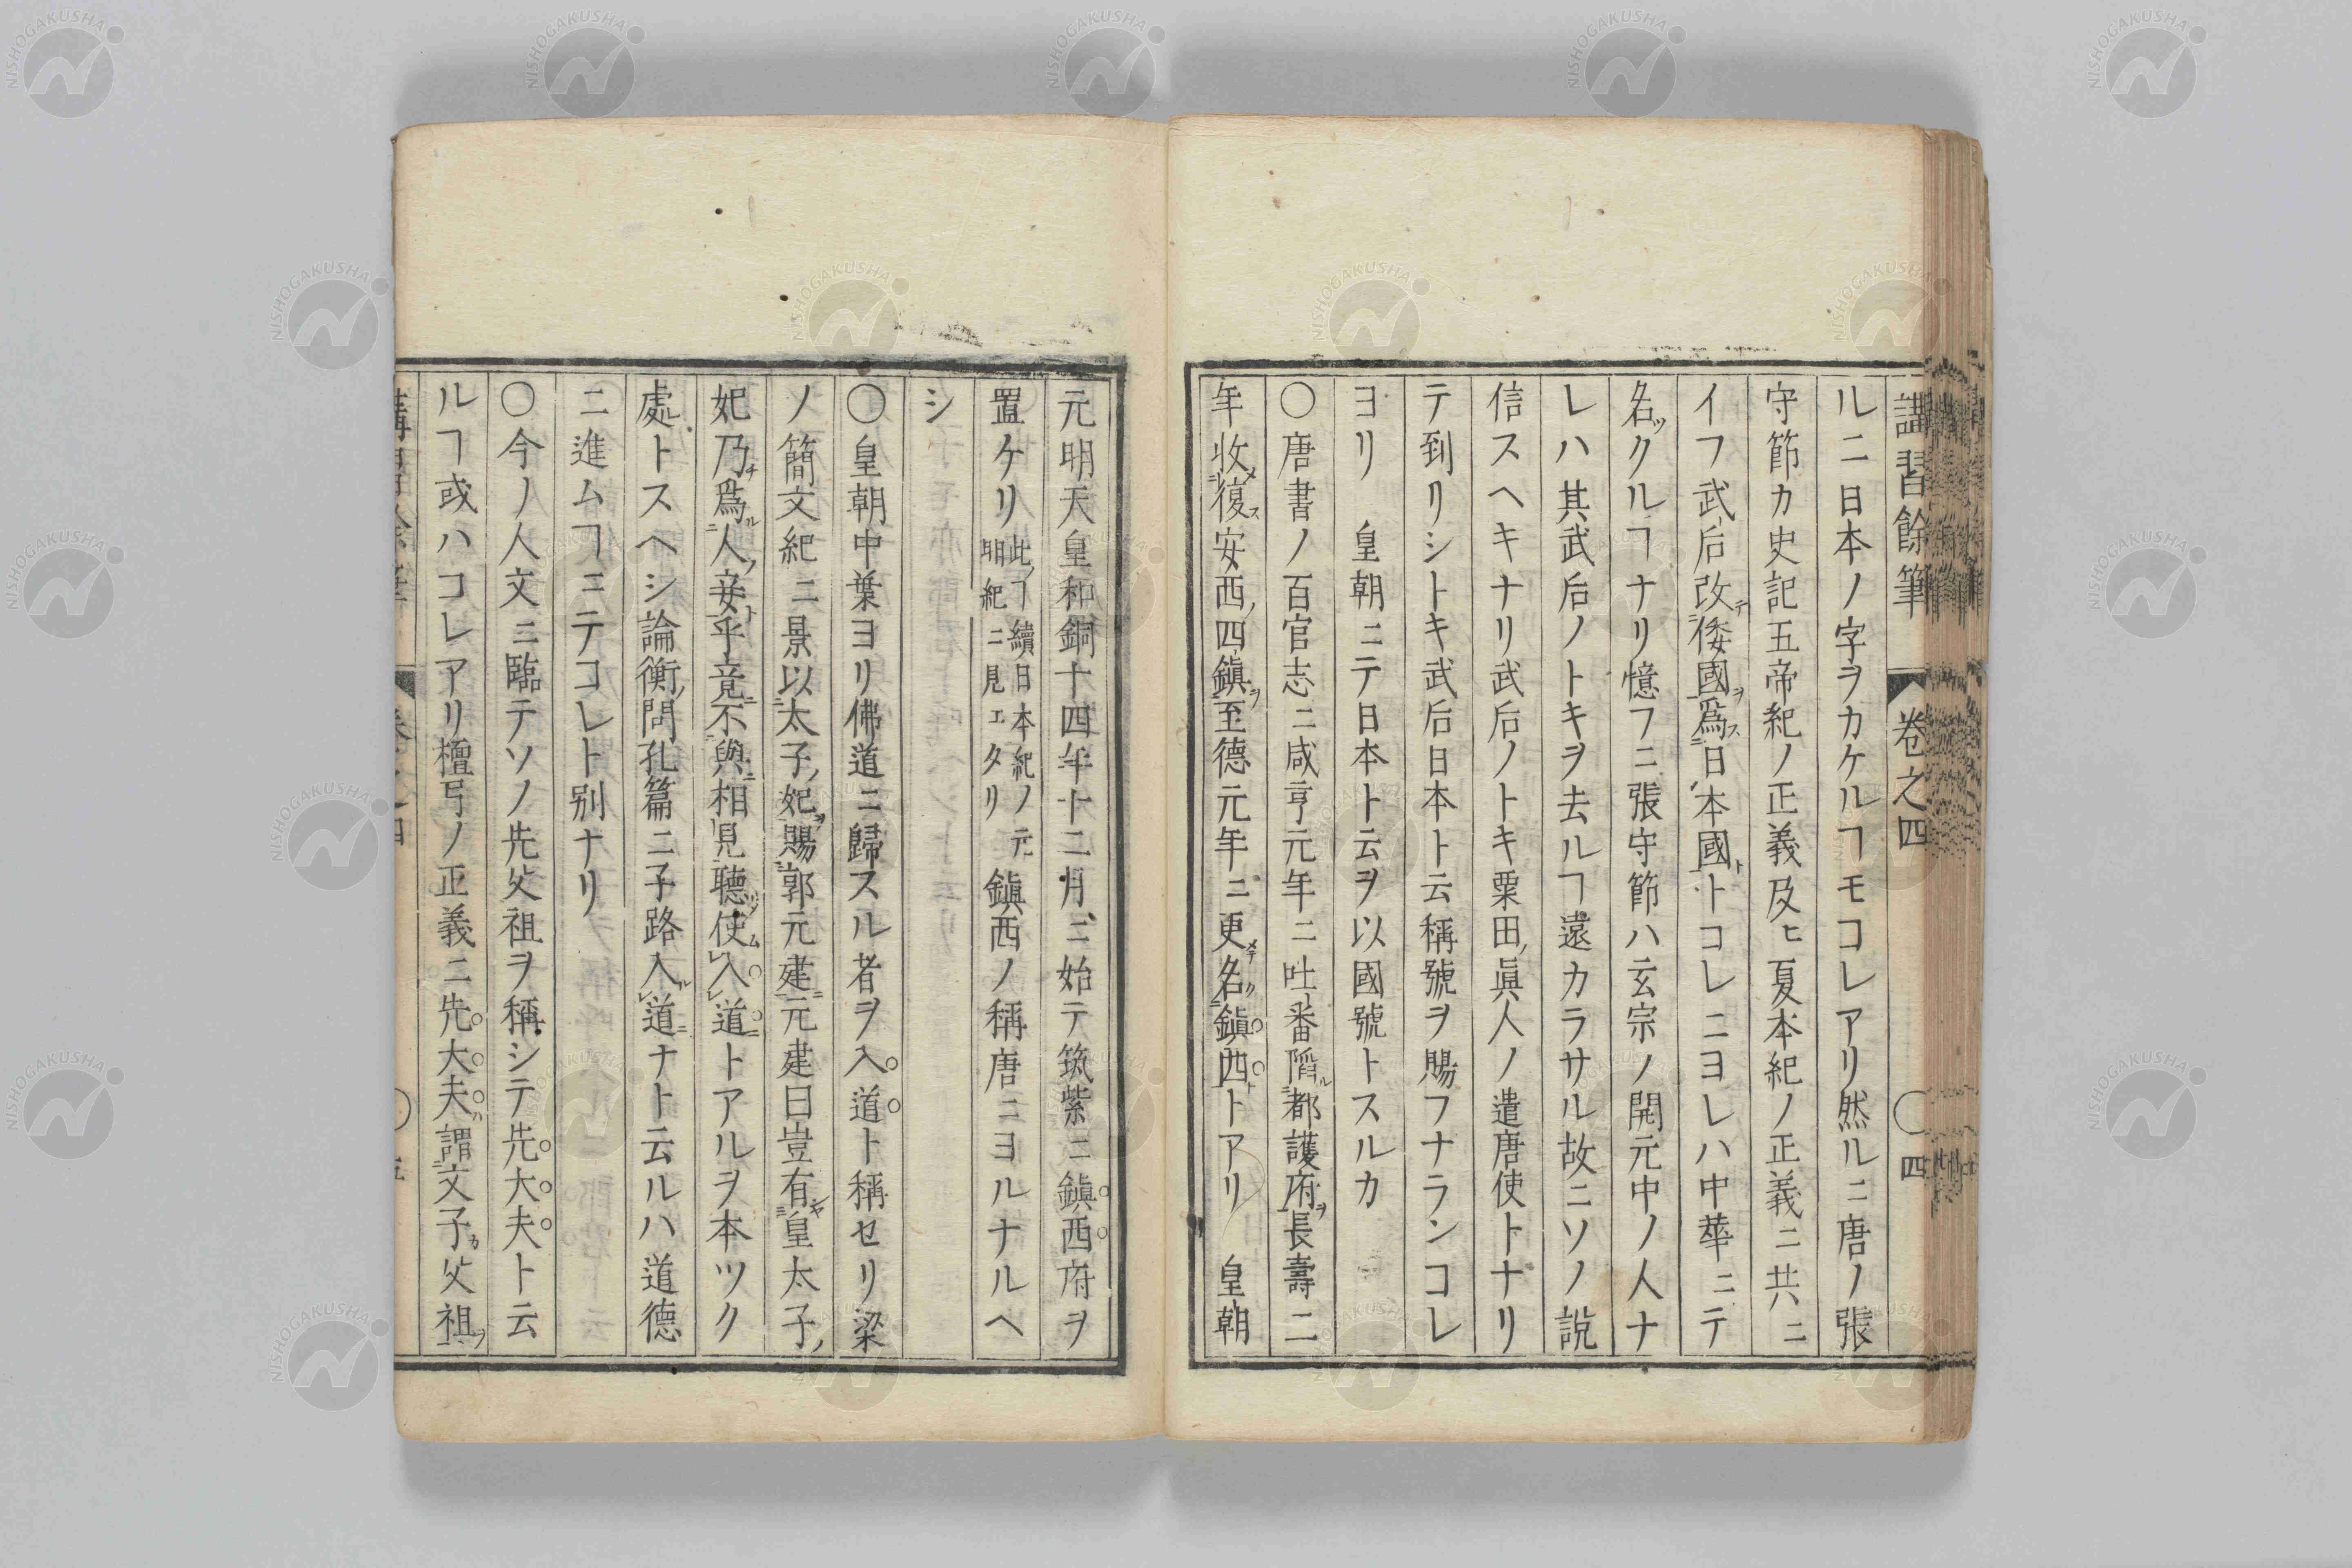 講習餘筆 卷之四 〇 四
ルニ日本ノ字ヲカケルヿモコレアリ然ルニ唐ノ張
守節カ史記五帝紀ノ正義及ヒ夏本紀ノ正義ニ共ニ
イフ武后改テ倭國ヲ爲ス日本國トトコレニヨレハ中華ニテ
名ツクルヿナリ憶フニ張守節ハ玄宗ノ開元中ノ人ナ
レハ其武后ノトキヲ去ルヿ遠カラサル故ニソノ説
信スヘキナリ武后ノトキ粟田ノ眞人ノ遣唐使トナリ
テ到リシトキ武后日本ト云稱號ヲ賜フナランコレ
ヨリ 皇朝ニテ日本ト云ヲ以國號トスルカ
〇唐書ノ百官志ニ咸亨元年ニ吐番陷ル都護府ヲ長壽二
年收メ復ス安西ノ四鎮ヲ至德元年ニ更メテ名ツク鎮西トトアリ 皇朝
元明天皇和銅十四年十二月ニ始テ筑紫ニ鎮西府ヲ
置ケリ此ノヿ續日本紀ノ元明紀ニ見エタリ鎮西ノ稱唐ニヨルナルヘ
シ
〇皇朝中葉ヨリ佛道ニ歸スル者ヲ入道ト稱セリ梁
ノ簡文紀ニ景以太子ノ妃ヲ賜郭元建ニ元建曰豈有ヤ皇太子ノ
妃乃チ爲ル人ノ妾ト乎竟ニ不與ニ相見聽ソ使ム入道ニトアルヲ本ツク
處トスヘシ論衡ノ問孔篇ニ子路入ル道ニナト云ルハ道德
ニ進ムヿニテコレト別ナリ
〇今ノ人文ニ臨テソノ先父祖ヲ稱シテ先大夫ト云
ルヿ或ハコレアリ檀弓ノ正義ニ先大夫ハ謂文子カ父祖ヲ